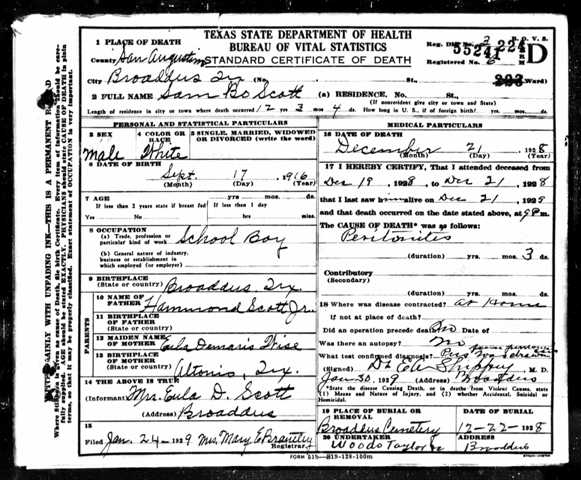 TEXAS STATE DEPARTMENT OF HEALTH
BUREAU OF VITAL STATISTICS
STANDARD CERTIFICATE OF DEATH
1 PLACE OF DEATH
County San Augustine
Reg. Dis.
55241
224
D
Registered No. 6
City Broaddus Tex (No. St., Ward)
2 FULL NAME Sam Bo Scott (a) RESIDENCE, No. St.,
(If nonresident give city or town and State)
Length of residence in city or town where death occurred 12 yrs 3 mos 4 ds. How long in U. S., if of foreign birth? yrs. mos. ds.
PERSONAL AND STATISTICAL PARTICULARS
3 SEX
Male
4 COLOR OR RACE
White
5 SINGLE, MARRIED, WIDOWED OR DIVORCED (write the word)
6 DATE OF BIRTH
Sept. 17 1916
(Month) (Day) (Year)
7 AGE
If less than 2 years state if breast fed
If less than 1 day
Yes No
8 OCCUPATION
(a) Trade, profession or particular kind of work School Boy
(b) General nature of industry, business or establishment in which employed (or employer)
9 BIRTHPLACE
(State or country) Broaddus, Tex
PARENTS
10 NAME OF FATHER Hammond Scott Jr.
11 BIRTHPLACE OF FATHER
(State or country)
12 MAIDEN NAME OF MOTHER Eula Damaris Wise
13 BIRTHPLACE OF MOTHER
(State or country) Altonio, Tex.
14 THE ABOVE IS TRUE
(Informant) Mrs. Eula D. Scott
(Address) Broaddus
15
Filed Jan. 24 1929 Mrs. Mary E. Brantley
Registrar
MEDICAL PARTICULARS
16 DATE OF DEATH
December 21, 1928
(Month) (Day) (Year)
17 I HEREBY CERTIFY, That I attended deceased from
Dec 19, 1928 to Dec 21, 1928
that I last saw him alive on Dec 21, 1928
and that death occurred on the date stated above, at 9 P.m.
The CAUSE OF DEATH* was as follows:
Peritonites
(duration) yrs. mos. 3 ds.
Contributory
(Secondary)
(duration) yrs. mos. ds.
18 Where was disease contracted? At Home
if not at place of death?
Did an operation precede death? No
Was there an autopsy? No
What test confirmed diagnosis?
(Signed) M. D.
Jan 30, 1929 (Address) Broaddus
*State the Disease Causing Death, or in deaths from Violent Causes, state (1) Means and Nature of Injury, and (2) whether Accidental, Suicidal or Homicidal.
19 PLACE OF BURIAL OR REMOVAL
Broaddus Cemetery
12-22-1928
20 UNDERTAKER
Woods Taylor
ADDRESS
Broaddus